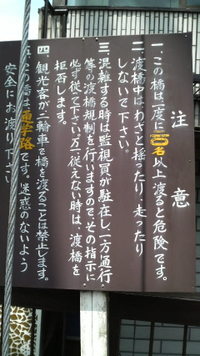 注意
一、この橋は一度に百名以上渡ると危険です。
二、渡橋中はわざと揺ったり、走ったり
しないで下さい。
三、混雑する時は監視員が駐在し一方通行
等の渡橋規制を行いますのでその指示に
必ず従って下さい万一従えない時は、渡橋を
拒否します。
四、観光客が二輪車で橋を渡ることは禁止します。
五、この橋は、通学路です。迷惑のないよう
安全にお渡り下さい